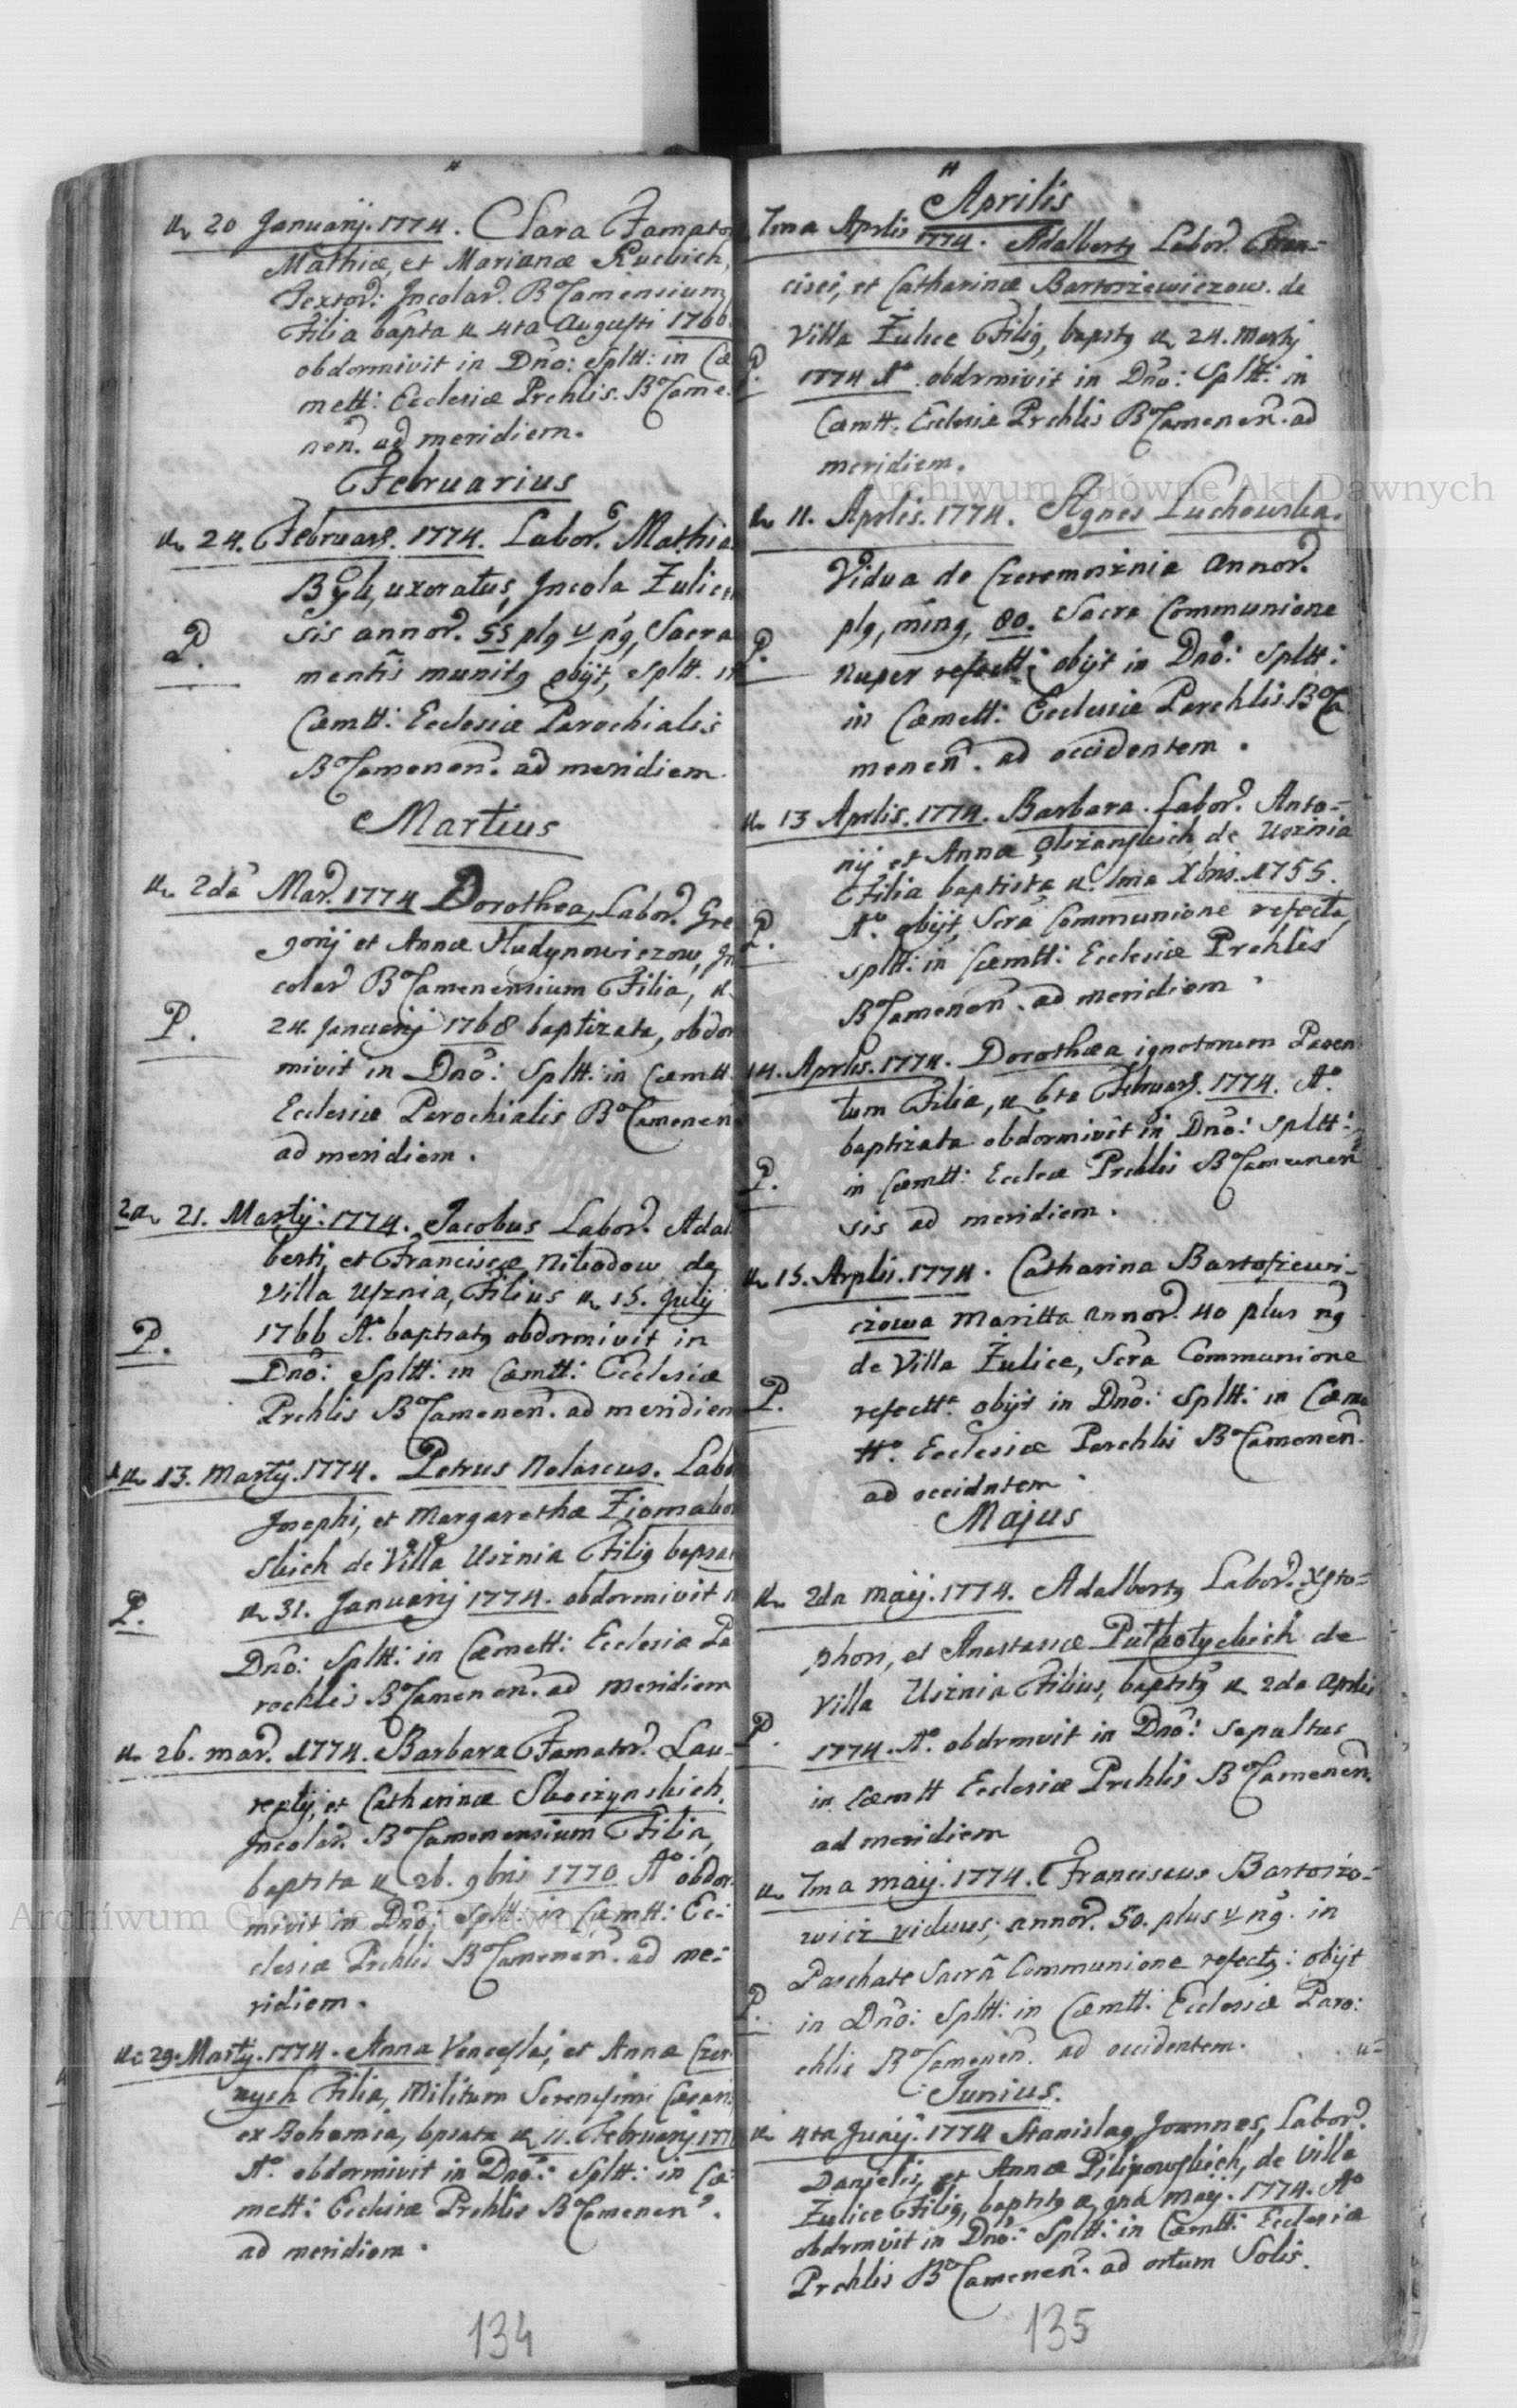 20 Januarij. 1774. Clara Famator
Mathiæ, et Marianæ
Textor: Incolar. B Camensium
Filia bapta 4ta Augusti 1760
obdormivit in Dno: Splt: in Cæ
mett: Ecclesiæ Prchlis. B Came
nen. ad meridiem.
Februarius
24. Februar. 1774. Labor. Mathia
Byk, uxoratus, Incola Zulicen
sis annor. 55 plg v ng, Sacra
mentis munitg obijt, Spltt. in
Cæmtt: Ecclesiæ Parochialis
B Camenen. ad meridiem.
Martius
2da Mar. 1774 Dorothea, Labor. Gre
gorij et Annæ Studynowiczow, In
colar B Camenensium Filia,
P. 24 Januarij 1768 baptizata, obdor
mivit in Dno: Spltt: in Cæmtt.
Ecclesiæ Parochialis B Camenen
ad meridiem.
21. Martij. 1774. Jacobus Labor. Adal
berti, et Franciscæ de
Villa Usznia, Filius 15. Julij
P. 1766 Ao. baptzatg obdormivit in
Dno: Spltt: in Cæmtt: Ecclesiæ
Prchlis B Camenen. ad meridiem
13. Martij. 1774. Petrus Nolascus. Labo
Josephi, et Margarethæ Ziomabor
skich de Villa Usznia Filig bapza
P. 31. Januarij 1774. obdormivit in
Dno: Spltt: in Cæmett: Ecclesiæ Pa
rochlis B Camenen. ad meridiem
26. mar. 1774. Barbara Famator. Lau-
rentij, et Catharinæ
Incolar. B Camenensium Filia,
baptzta 26. 9bris 1770 Ao obdor
mivit in Dno: Spltt: in Cæmtt: Ec:
clesiæ Prchlis B Camenen. ad me:
ridiem.
29. Martij. 1774. Anna Venceslai, et Anna Czer
nych Filia, Militum Serenissimi Cæsaris
ex Bohemia, bpzata 11. Februarij 177
Ao. obdormivit in Dno: Spltt: in Cæ
mett: Ecclesiæ Prchlis B Camenen.
ad meridiem.
134
Aprilis
7ma Aprlis 1774. Adalbertg Labor. Fran=
cisci, et Catharinæ Bartosiewiczow. de
Villa Żulice Filig, bapztg 24. Martij
P. 1774 Ao. obdrmivit in Dno: Spltt: in
Cæmtt. Ecclesiæ Prchlis B Camenen. ad
meridiem.
11. Aprlis. 1774. Agnes Luchowska.
Vidua de Czeremosznia Annor.
plg, ming, 80. Sacra Communione
P. nuper refectt: obijt in Dno: Spltt:
in Cæmett: Ecclesiæ Parchlis. B Ca
menen. ad occidentem.
13 Aprlis. 1774. Barbara. Labor. Anto=
nij et Annæ de Usznia
Filia baptizta 1ma Xbris. 1755.
P. Ao. obijt, Scra Communione refecta,
spltt: in Cæmtt: Ecclesiæ Prchlis
B Camenen. ad meridiem
14. Aprlis. 1774. Dorothæa ignotorum Paren
tum Filia, 6ta Februar. 1774. Ao.
baptizata obdormivit in Dno: Spltt:
P. in Cæmtt: Eccleæ Prchlis B Camenen
sis ad meridiem.
15. Arplis. 1774. Catharina Bartosiewi-
czowa Maritta annor. 40 plus ng
de Villa Żulice, Scra Communione
P. refectt. obijt in Dno: Spltt: in Cæme
tt. Ecclesiæ Parchlis B Camenen.
ad occidntem
Majus
2da Maij. 1774. Adalbertg Labor. Xsto=
phori, et Anastasiæ de
Villa Usznia Filius, baptztg 2da Aprlis
P. 1774. Ao. obdrmvit in Dno: Sepultus
in Cæmtt Ecclesiæ Prchlis B Camenen.
ad meridiem
7ma Maij. 1774. Franciscus Bartosze=
wicz viduus, annor. 50. plus v ng. in
Paschate Sacra Communione refectg: obijt
P. in Dno: Spltt: in Cæmtt: Ecclesiæ Paro:
chlis B Camenen. ad occidentem.
Junius.
4ta Junij. 1774 Stanislag Joannes, Labor.
Danielis, et Annæ Pilipowskich, de Villa
Żulice Filig, baptztg 9na Maij. 1774. Ao
obdrmvit in Dno: Spltt: in Cæmtt: Ecclesiæ
Prchlis B Camenen. ad ortum Solis.
135
Archiwum Główne Akt Dawnych
Archiwum Główne Akt Dawnych